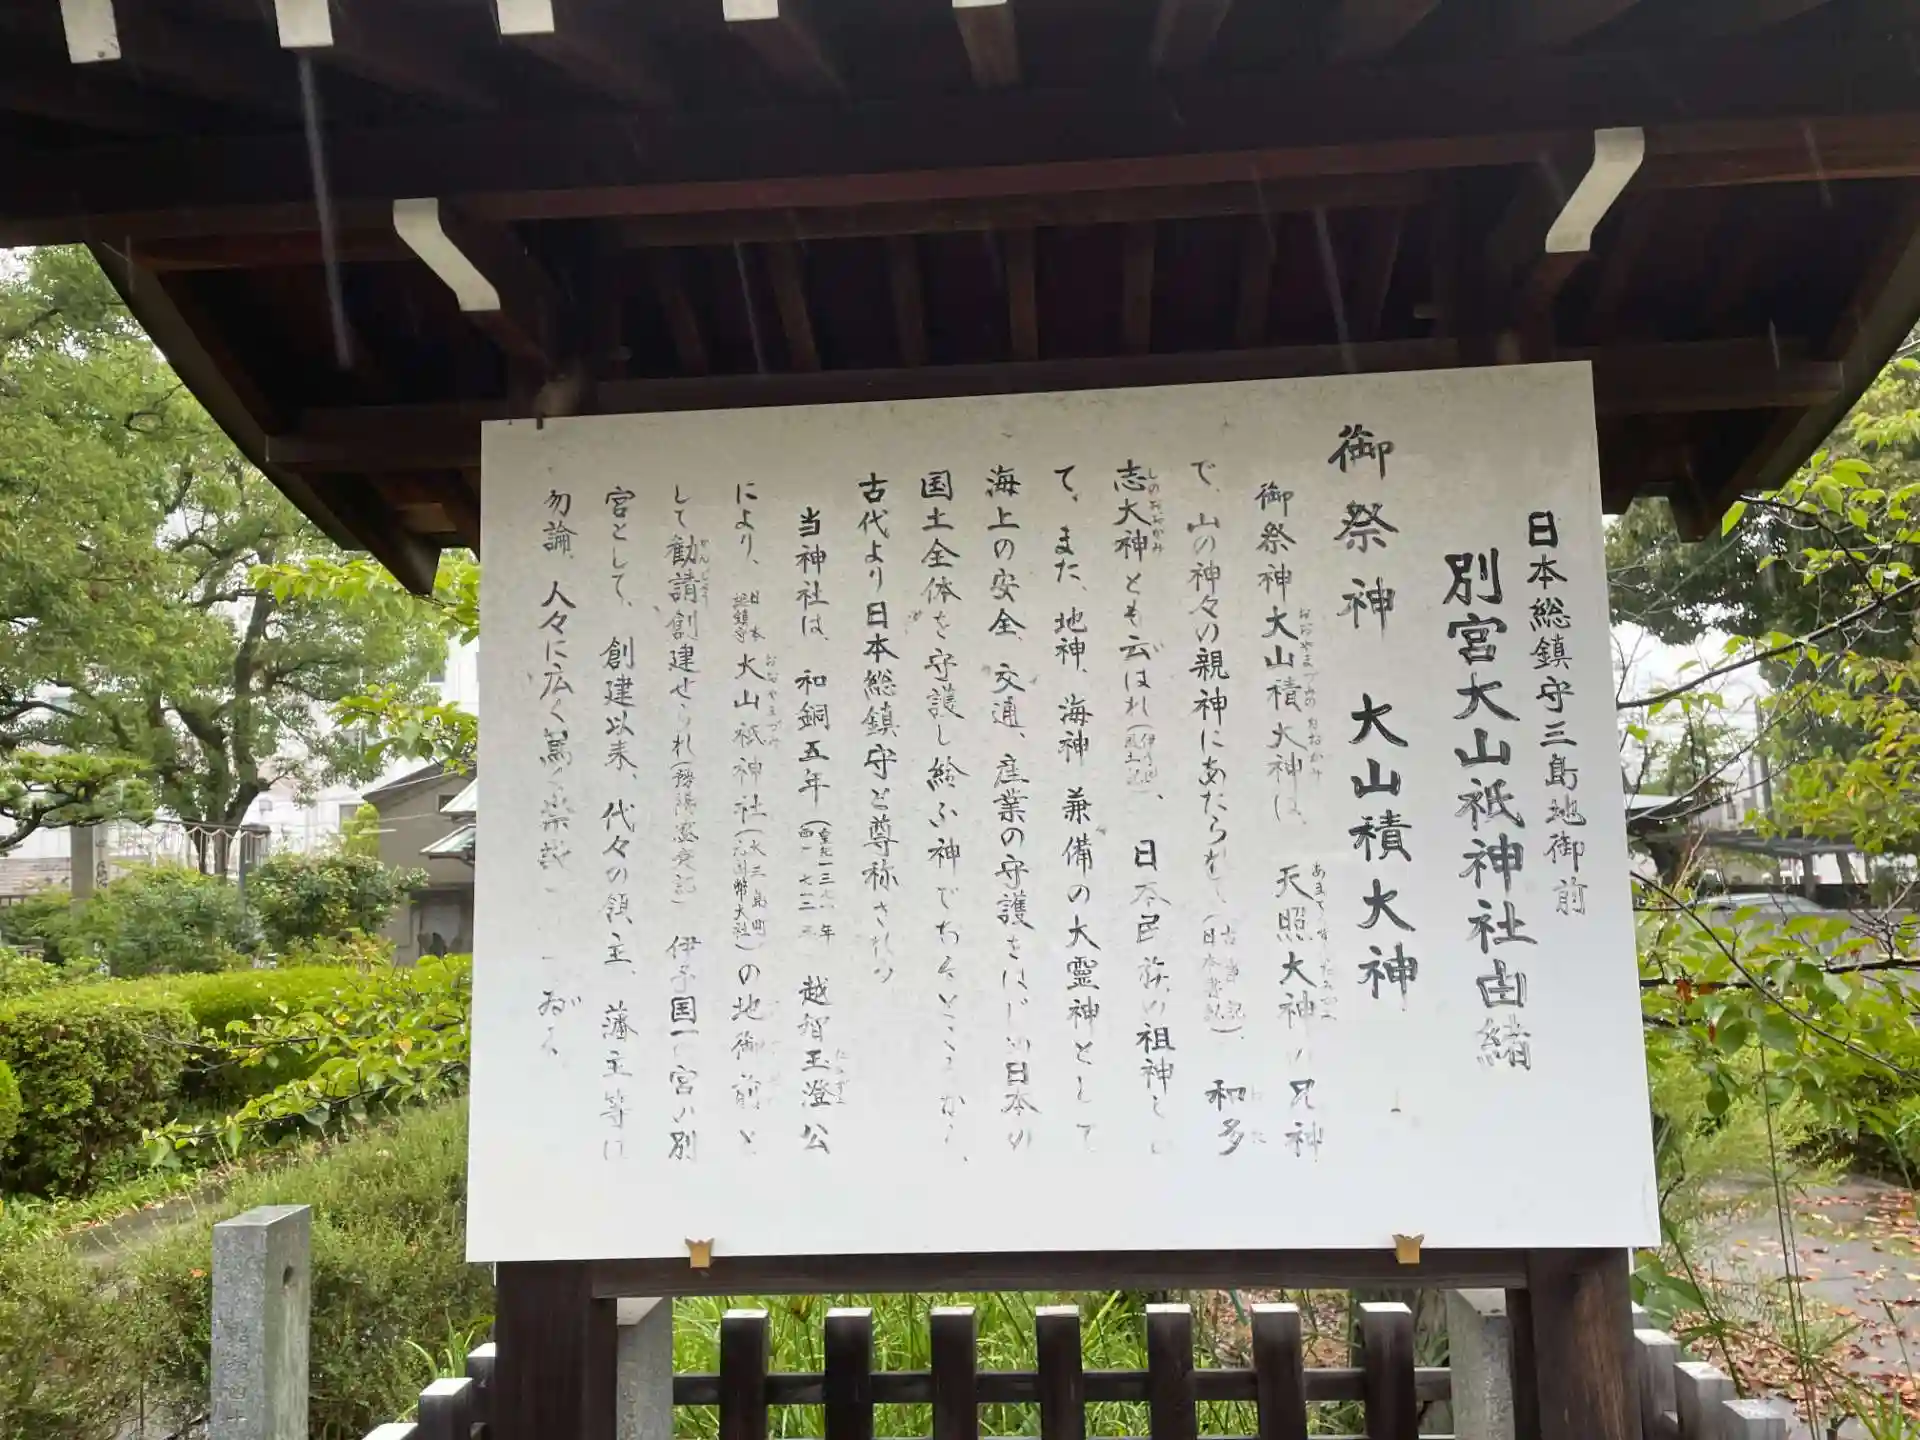 日本総鎮守三島地御前
別宮大山祇神社由緒
御祭神 大山積大神
御祭神大山積大神は、天照大神の兄神
で、山の神々の親神にあたられて(古事記 日本書記)、和多
志大神とも云はれ(伊予国風土記)、日本民族の祖神と
て、また、地神、海神兼備の大霊神として
海上の安全、交通、産業の守護をはじめ日本の
国土全体を守護し給ふ神で
古代より日本総鎮守と尊称され
当神社は、和銅五年(西 七一二年)越智玉澄公
により、日本総鎮守大山祇神社(大三島町 国幣大社)の地御前と
して勧請創建せられ(予陽盛衰記)伊予国一宮の別
宮として、創建以来、代々の領主、藩主等は
勿論、人々に広く篤く崇敬